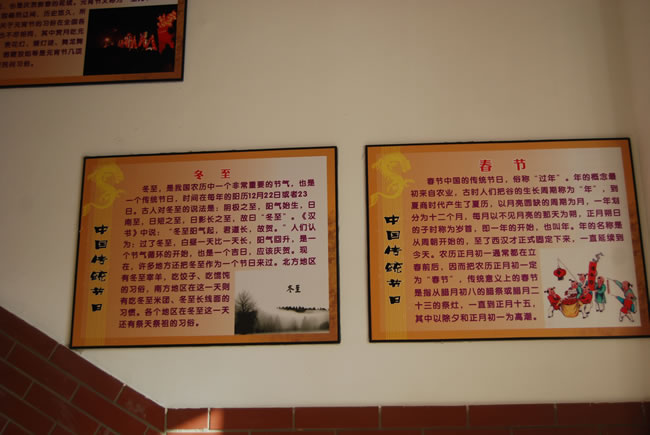 关于元宵节的习俗在全国各
不尽相同，其中
灯、猜灯谜、舞龙舞
是元宵节几项
民间习俗。
中国传统节日
冬 至
冬至，是我国农历中一个非常重要的节气，也是
一个传统节日，时间在每年的阳历12月22日或者23
日。古人对冬至的说法是：阴极之至，阳气始生，日
南至，日短之至，日影长之至，故曰“冬至”。《汉
书》中说：“冬至阳气起，君道长，故贺。”人们认
为：过了冬至，白昼一天比一天长，阳气回升，是一
个节气循环的开始，也是一个吉日，应该庆贺。现
在，许多地方还把冬至作为一个节日来过。北方地区
有冬至宰羊，吃饺子、吃馄饨
的习俗，南方地区在这一天则
有吃冬至米团、冬至长线面的
习惯。各个地区在冬至这一天
还有祭天祭祖的习俗。
冬至
中国传统节日
春 节
春节中国的传统节日，俗称“过年”。年的概念最
初来自农业，古时人们把谷的生长周期称为“年”，到
夏商时代产生了夏历，以月亮圆缺的周期为月，一年划
分为十二个月，每月以不见月亮的那天为朔，正月朔日
的子时称为岁首，即一年的开始，也叫年。年的名称是
从周朝开始的，至了西汉才正式固定下来，一直延续到
今天。农历正月初一通常都在立
春前后，因而把农历正月初一定
为“春节”，传统意义上的春节
是指从腊月初八的腊祭或腊月二
十三的祭灶，一直到正月十五，
其中以除夕和正月初一为高潮。